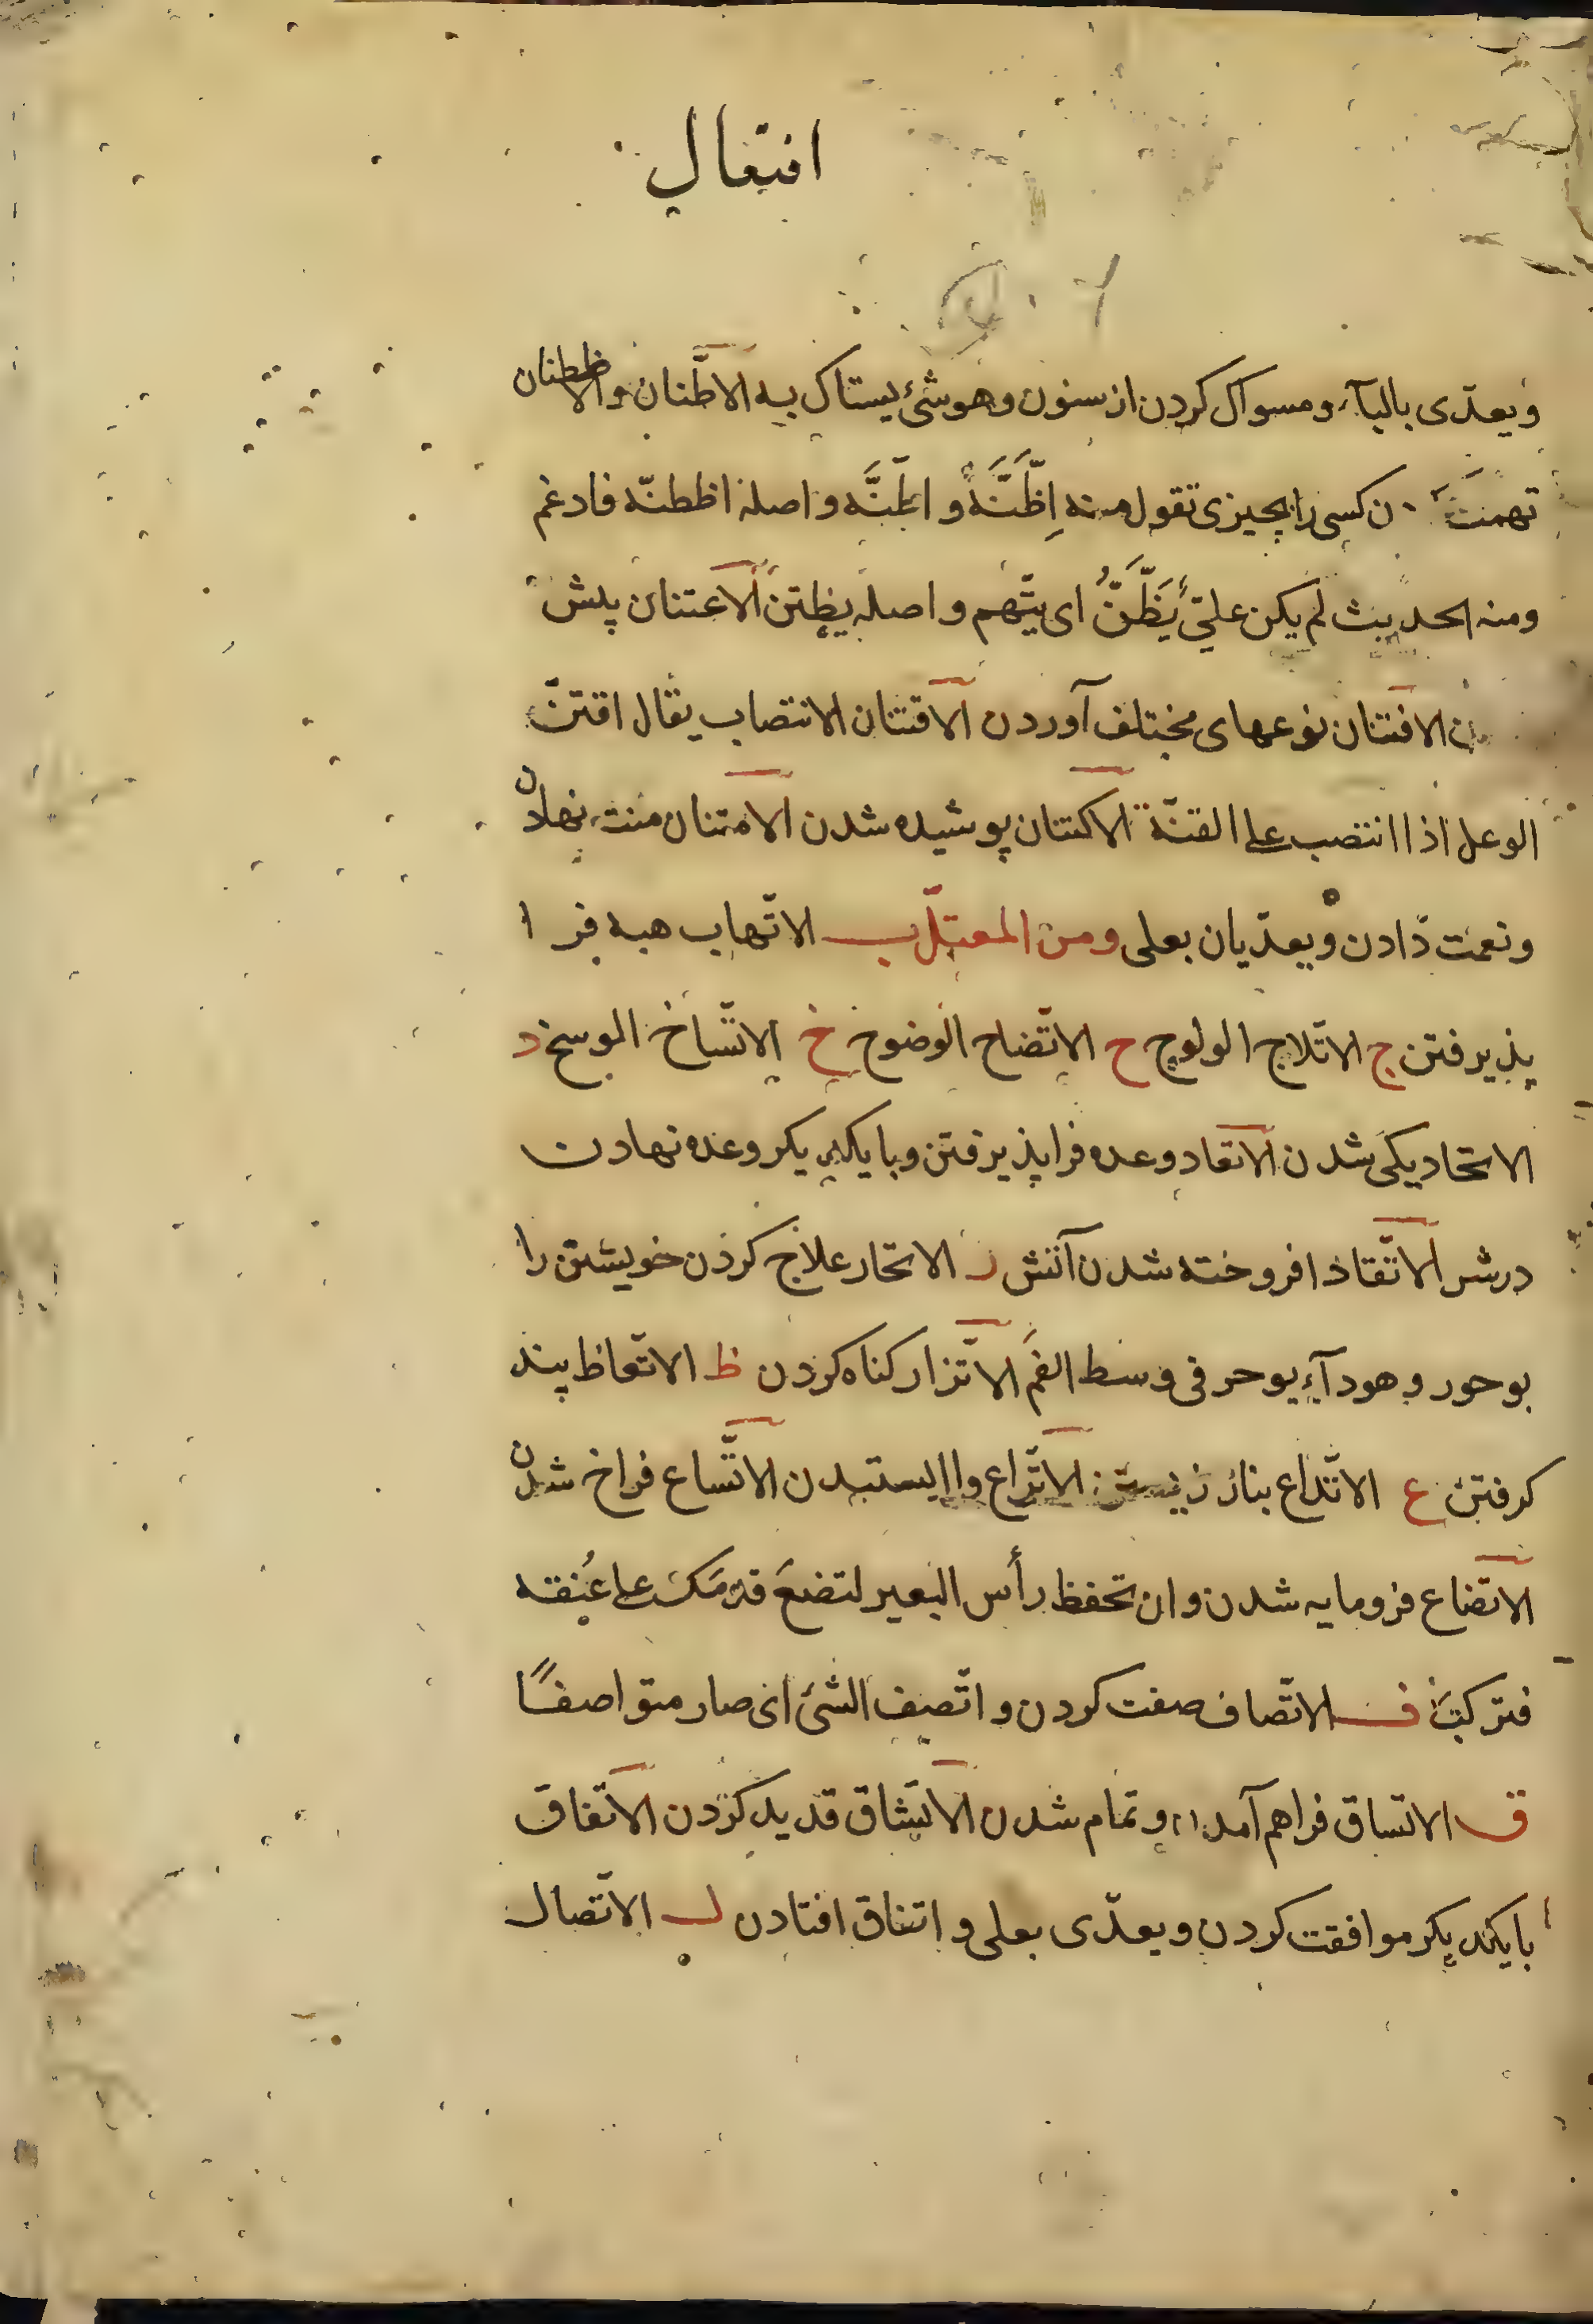 افتعال
ويعدّى بالبآء ومسواك كردن از سنون وهو شئ يستاك به الاطّنان والاظطنان
تهمت كسى را بچيزى تقول منه اِظَّنَّهُ و اطّنَّه واصله اظطنّه فادغم
ومنه الحديث لم يكن علىّ يَظَّنُّ اى يتّهم واصله يظتن الاعتنان پيش
الافتنان نوعهاى مختلف آوردن الاقتنان الانتصاب يقال اقتنّ
الوعل اذا انتصب على القنّة الاكتنان پوشيده شدن الامتنان منت نهادن
ونعمت دادن ويعدّيان بعلى ومن المعتلّ ب الاتّهاب هبه فرا
پذيرفتن ج الاتّلاج الولوج ح الاتّضاح الوضوح خ الاتّساخ الوسخ د
الاتحاد يكى شدن الاتعاد وعده فرا پذيرفتن وبا يكديكر وعده نهادن
درشر الاتّقاد افروخته شدن آتش ر الاتجار علاج كردن خويشتن را
بوجور وهو دآء يوجر فى وسط الفم الاتّزار كناه كردن ظ الاتّعاظ پند
كرفتن ع الاتّداع بناز زيستن الاتّزاع وا ايستيدن الاتّساع فراخ شدن
الاتضاع فرومايه شدن وان تخفظ رأس البعير لتضعَ قدمك على عُنقه
فتركبَ ف الاتّصاف صفت كردن واتّصف الشئ اى صار متواصفًا
ق الاتساق فراهم آمدن وتمام شدن الاتّشاق قديد كردن الاتّفاق
با يكديكر موافقت كردن ويعدّى بعلى واتفاق افتادن ل الاتّصال